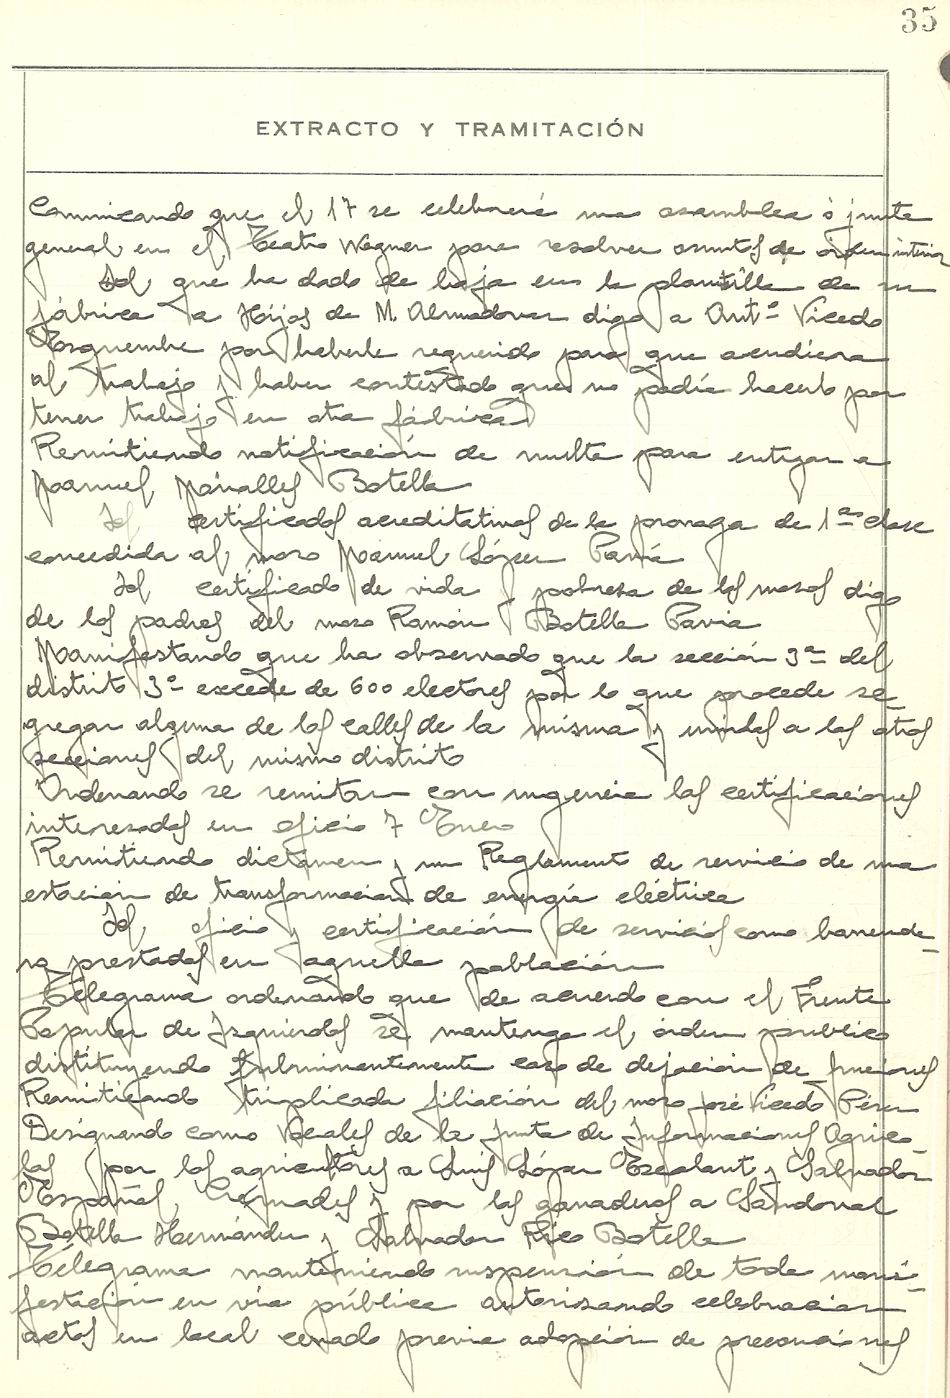 35
EXTRACTO Y TRAMITACIÓN
Comunicando que el 17 se celebrará una asamblea ó junta
general en el Teatro Wagner para resolver asuntos de órden interior
Id que ha dado de baja en la plantilla de su
fábrica a Hijos de M. Almodovar digo a Antº Vicedo
por haberle requerido para que acudiera
al trabajo y haber contestado que no podía hacerlo por
tener trabajo en otra fábrica
Remitiendo notificación de multa para entregar a
Manuel Botella
Id certificados acreditativos de la prorroga de 1ª clase
concedida al mozo Manuel López Pavia
Id certificado de vida y pobreza de los mozos digo
de los padres del mozo Ramón Botella Pavia
Manifestando que ha observado que la sección 3ª del
distrito 3º excede de 600 electores por lo que procede se-
gregar alguna de las calles de la misma y unirlas a las otras
secciones del mismo distrito
Ordenando se remitan con urgencia las certificaciones
interesadas en oficio 7 Enero
Remitiendo dictamen y un Reglamento de servicio de una
estación de transformación de energía eléctrica
Id oficio y certificación de servicios como barrende-
ro prestados en aquella población
Telegrama ordenando que de acuerdo con el Frente
Popular de Izquierdas se mantenga el órden público
distituyendo fulminantemente caso de dejación de funciones
Remitiendo triplicada filiación del mozo José Vicedo Pérez
Designando como Vocales de la Junta de Informaciones Agrico-
las por los agricultores a Luis López Escalant y Salvador
Español Cremades y por los ganaderos a Sandoval
Botella Hernández y Salvador Rico Botella
Telegrama manteniendo suspensión de toda mani-
festación en vía pública autorizando celebración
actos en local cerrado previa adopción de precauciones